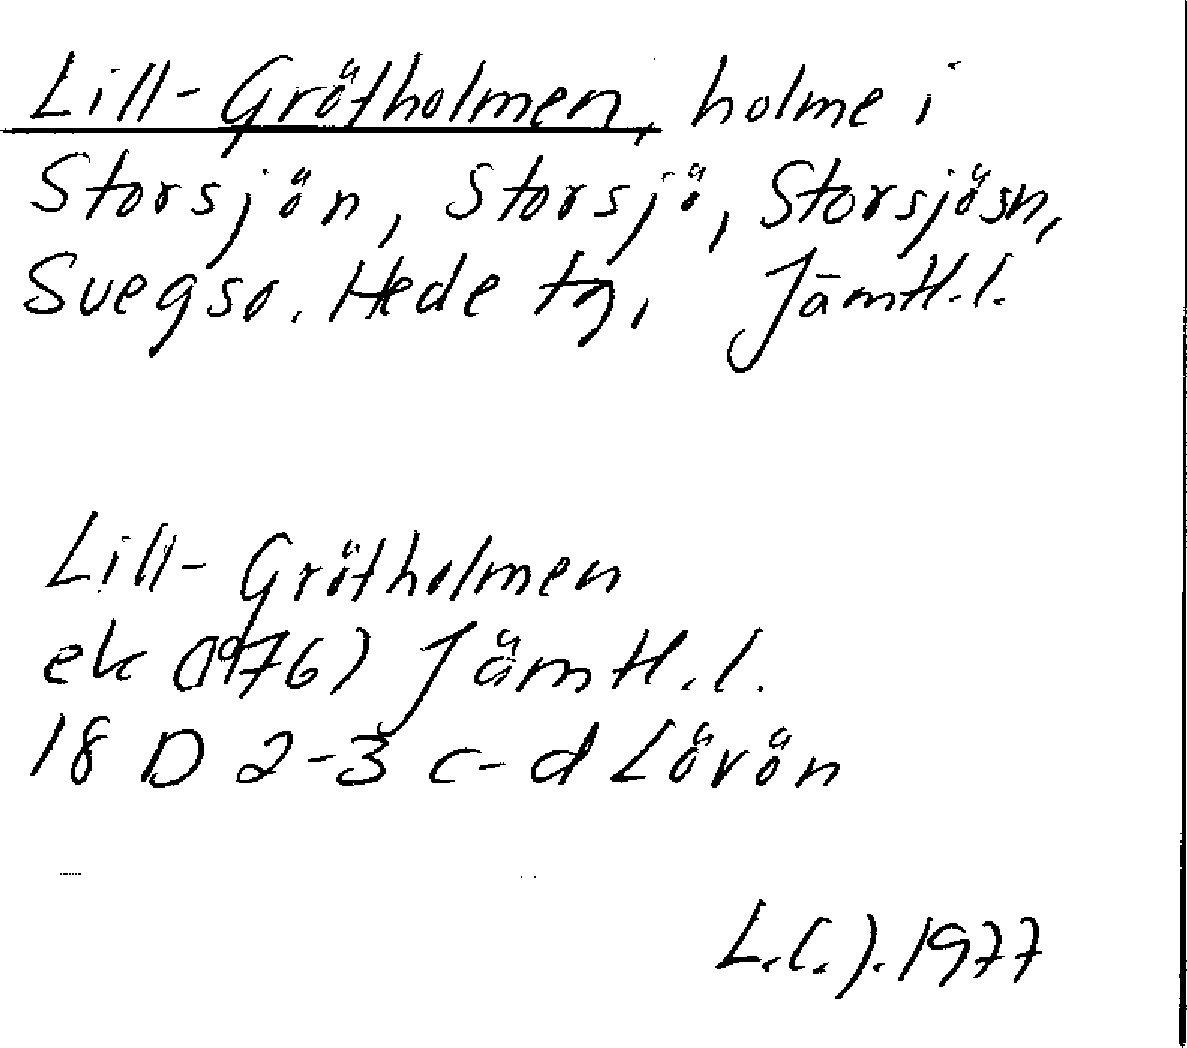 Lill-Grötholmen, holme i
Storsjön, Storsjö, Storsjösn,
Svegs o. Hede tg, Jämtl.l.
Lill-Grötholmen
ek (1976) Jämtl.l.
18 D 2-3 c-d Lövön
L.C.J. 1977